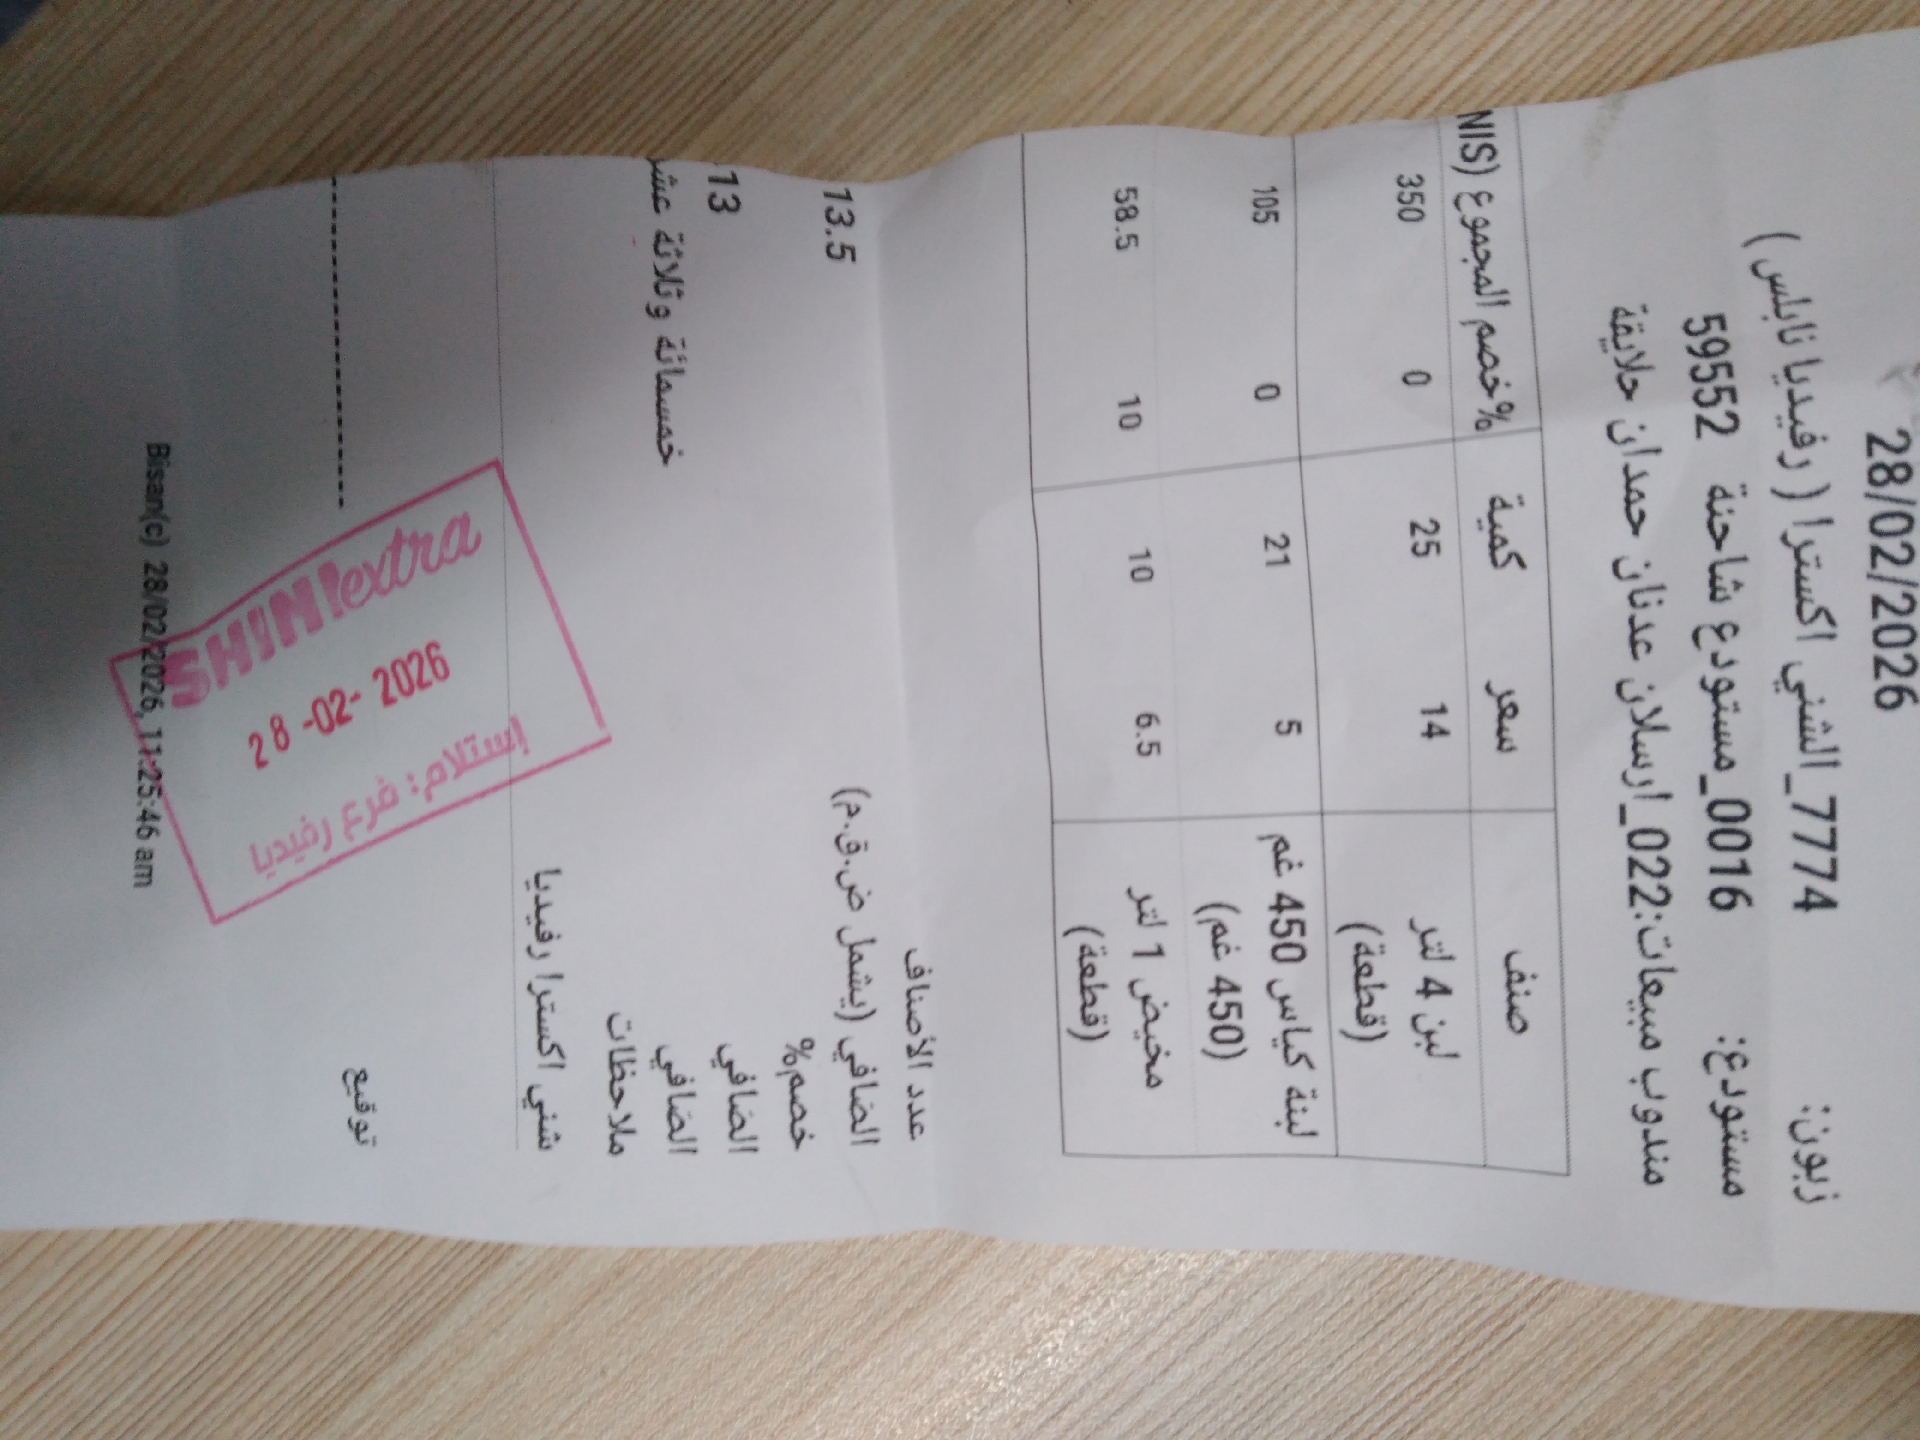 28/02/2026
زبون: 7774_الشني اكسترا ( رفيديا نابلس)
مستودع: 0016_مستودع شاحنة 59552
مندوب مبيعات:022_ارسلان عدنان حمدان حلايقة
صنف سعر كمية %خصم المجموع (NIS
لبن 4 لتر (قطعة) 14 25 0 350
لبنة كياس 450 غم (450 غم) 5 21 0 105
مخيض 1 لتر (قطعة) 6.5 10 10 58.5
عدد الأصناف
الصافي (يشمل ض.ق.م) 13.5
خصم%
الصافي 13
الصافي خمسمائة وثلاثة عش
ملاحظات
شني اكسترا رفيديا
توقيع ---------------------
SHINIextra
28 -02- 2026
إستلام: فرع رفيديا
Bisan(c) 28/02/2026, 11:25:46 am